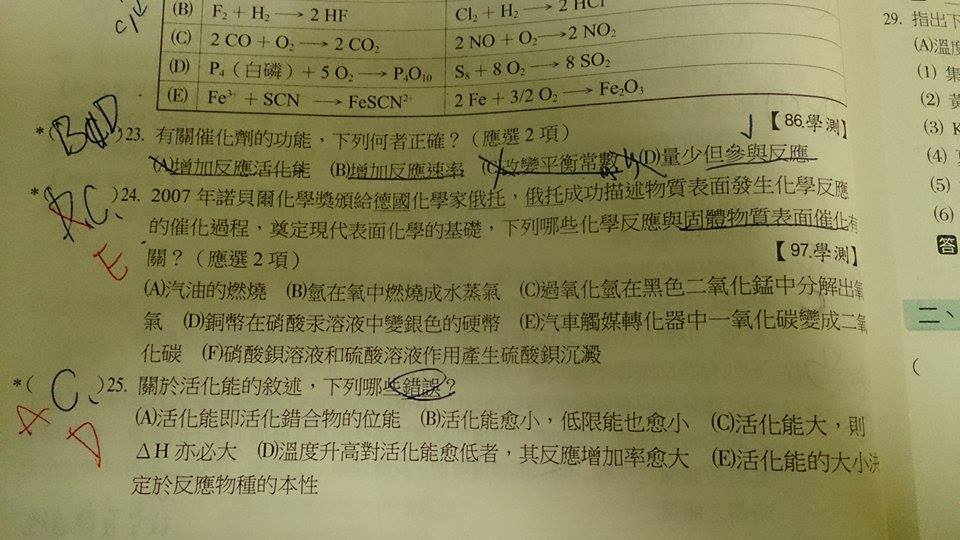 (B) F₂ + H₂ ⟶ 2 HF Cl₂ + H₂ ⟶ 2 HCl
(C) 2 CO + O₂ ⟶ 2 CO₂ 2 NO + O₂ ⟶ 2 NO₂
(D) P₄（白磷）+ 5 O₂ ⟶ P₄O₁₀ S₈ + 8 O₂ ⟶ 8 SO₂
(E) Fe³⁺ + SCN⁻ ⟶ FeSCN²⁺ 2 Fe + 3/2 O₂ ⟶ Fe₂O₃
*( B D )23. 有關催化劑的功能，下列何者正確？（應選 2 項） 【86.學測】
(A)增加反應活化能 (B)增加反應速率 (C)改變平衡常數 (D)量少但參與反應
*( C )24. 2007 年諾貝爾化學獎頒給德國化學家俄托，俄托成功描述物質表面發生化學反應
的催化過程，奠定現代表面化學的基礎，下列哪些化學反應與固體物質表面催化有
E 關？（應選 2 項） 【97.學測】
(A)汽油的燃燒 (B)氫在氧中燃燒成水蒸氣 (C)過氧化氫在黑色二氧化錳中分解出氧
氣 (D)銅幣在硝酸汞溶液中變銀色的硬幣 (E)汽車觸媒轉化器中一氧化碳變成二氧
化碳 (F)硝酸鋇溶液和硫酸溶液作用產生硫酸鋇沉澱
*( C )25. 關於活化能的敘述，下列哪些錯誤？
A (A)活化能即活化錯合物的位能 (B)活化能愈小，低限能也愈小 (C)活化能大，則
D ΔH 亦必大 (D)溫度升高對活化能愈低者，其反應增加率愈大 (E)活化能的大小決
定於反應物種的本性
29. 指出下
(A)溫度
(1) 集
(2) 黃
(3) K
(4)
(5)
(6)
答
二、
(